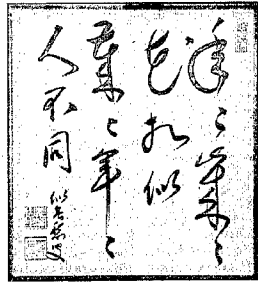 年々歳々
花相似
歳々年々
人不同